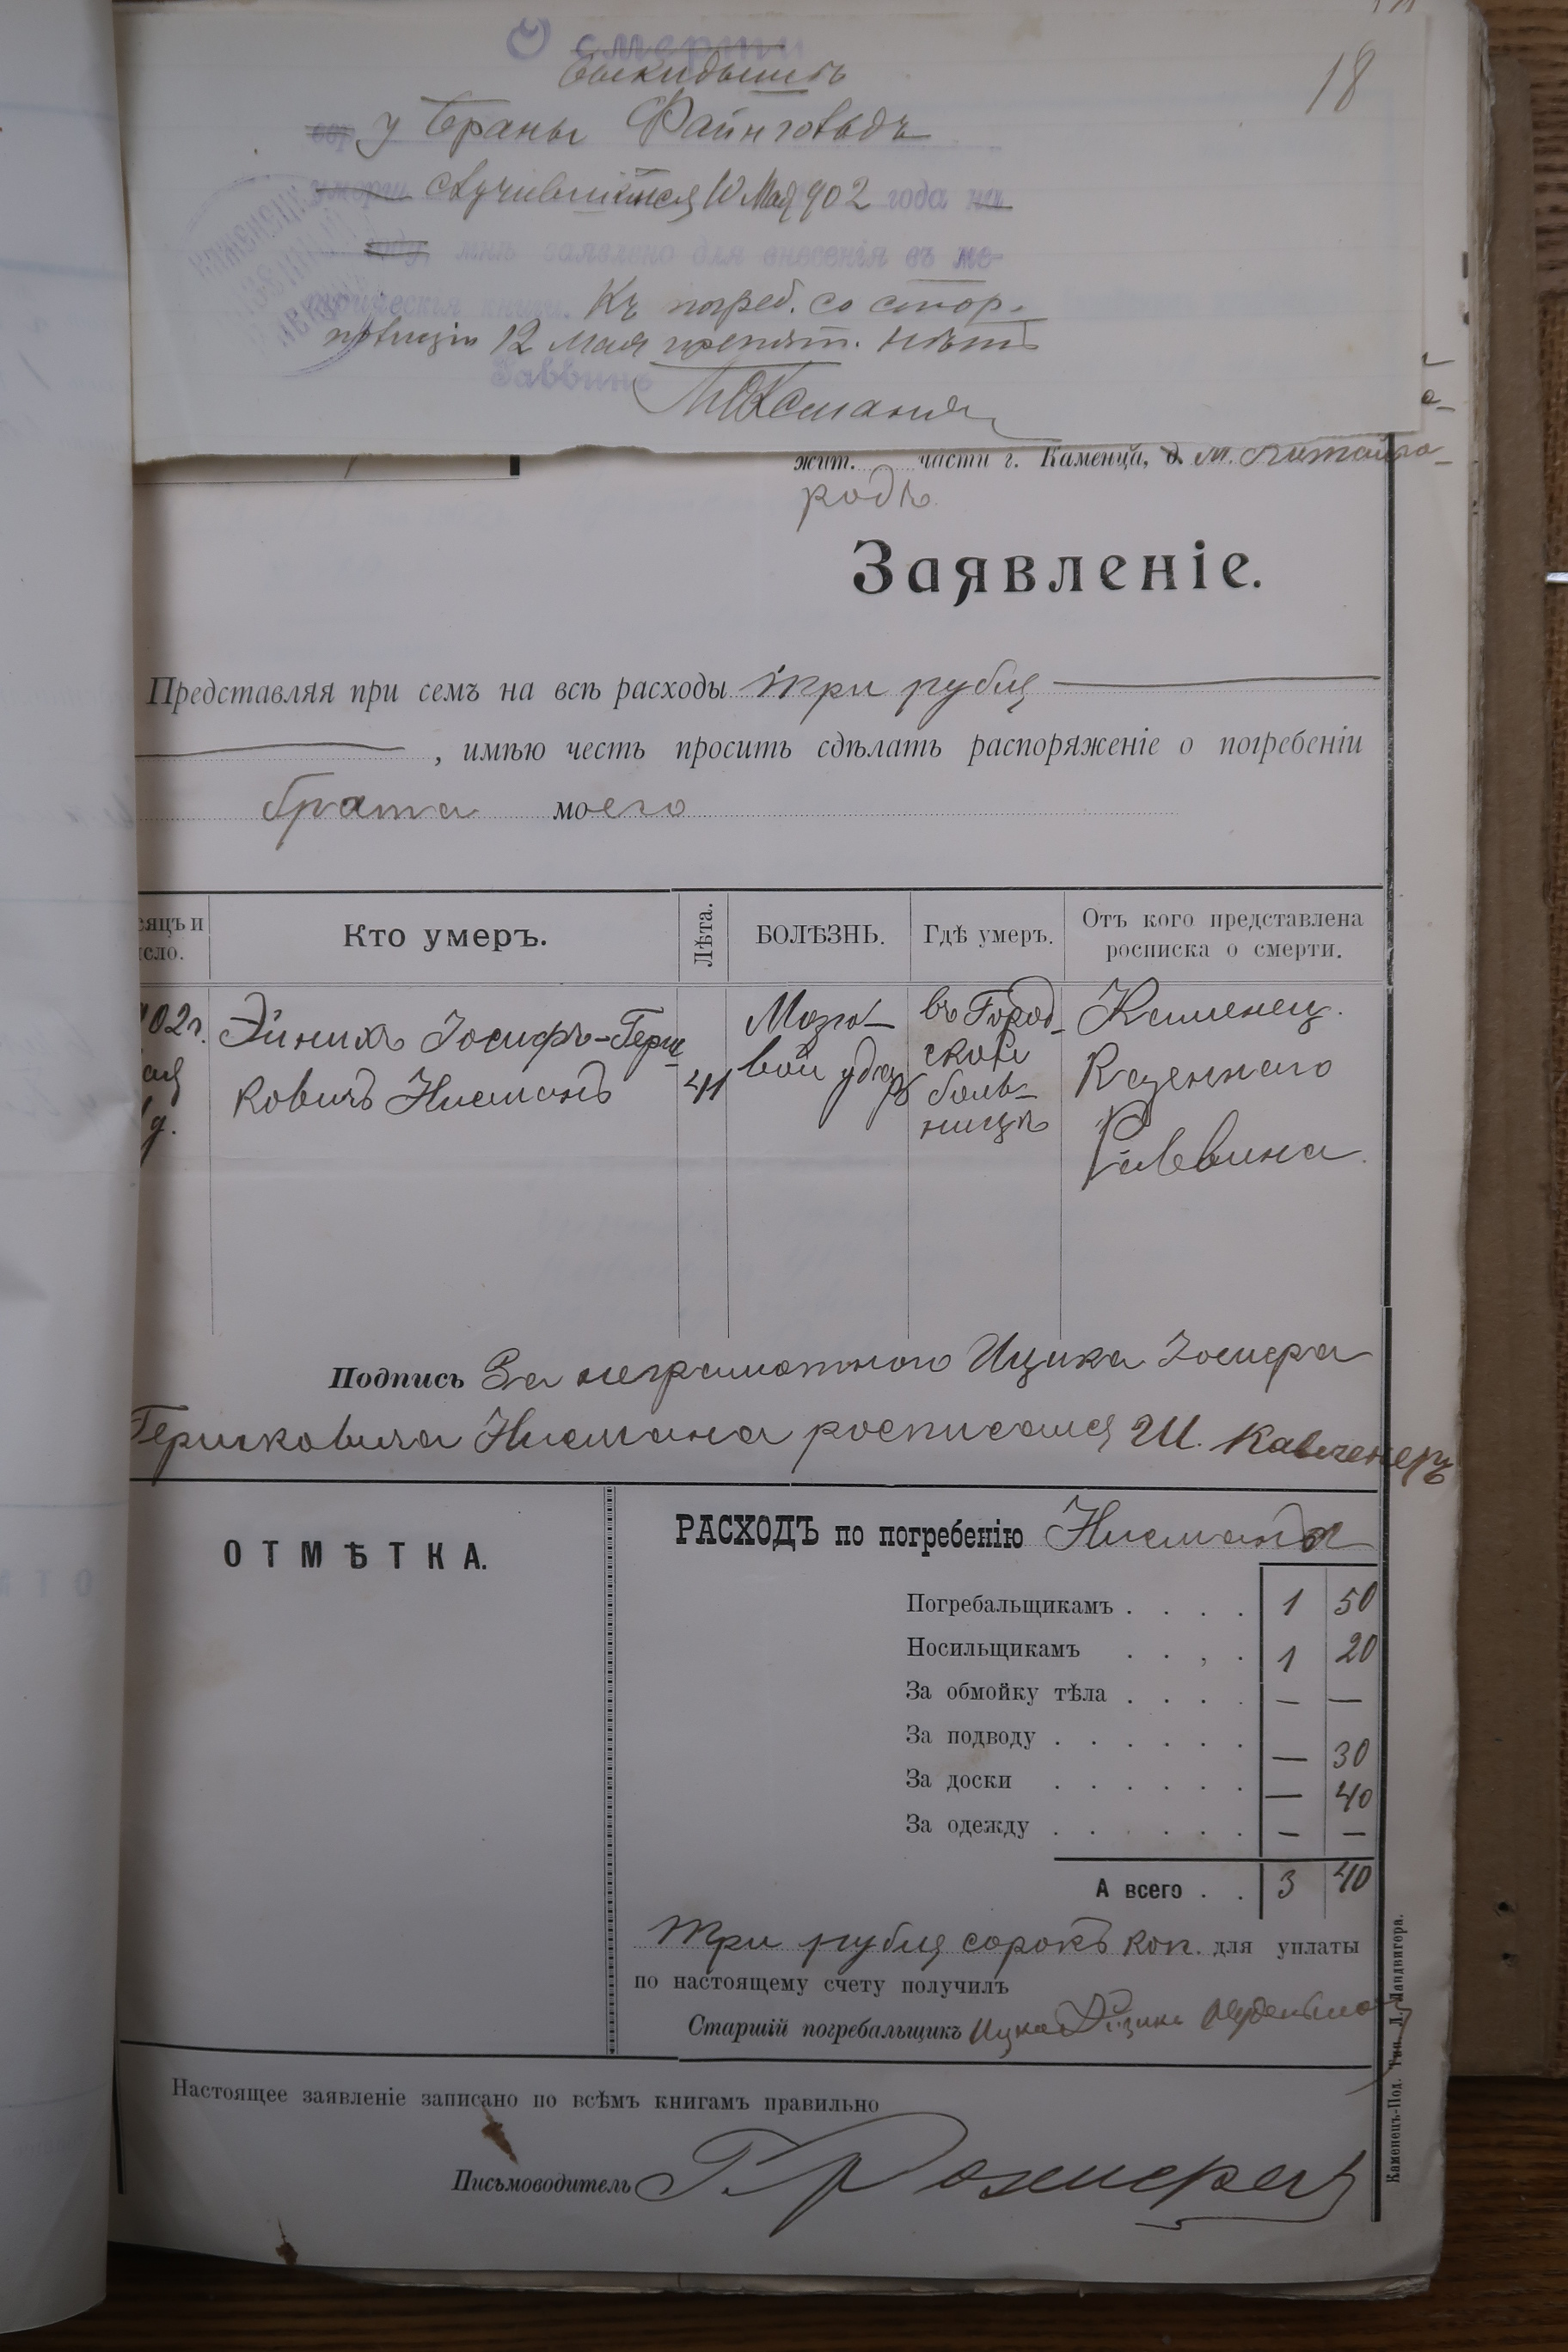 О смерти
выкидышѣ
у Браны Файнголвдъ
умерш случившійся 10 Мая 902 года на
мнѣ заявлено для внесенія въ ме-
трическія книги. Къ погреб. со стор.
полиціи 12 мая препят. нѣтъ
Раввинъ
18
жит. части г. Каменца, д. м. Китайго-
родъ
Заявленіе.
Представляя при семъ на всѣ расходы три рубля
, имѣю честь просить сдѣлать распоряженіе о погребеніи
брата моего
сяцъ и
сло.
Кто умеръ.
Лѣта.
БОЛѢЗНЬ.
Гдѣ умеръ.
Отъ кого представлена
росписка о смерти.
02 г.
Эйнихъ Іосифъ-Герш-
ковичъ Нисманъ
41
Мозго-
вой ударъ
въ Город-
ской
боль-
ницѣ
Каменец.
Казеннаго
Раввина.
Подпись За неграмотного Ицика Іосифа
Гершковича Нисмана росписался Ш. Кавченеръ
ОТМѢТКА.
РАСХОДЪ по погребенію Нисмана
Погребальщикамъ . . . . 1 50
Носильщикамъ . . , . 1 20
За обмойку тѣла . . . . — —
За подводу . . . . . . — 30
За доски . . . . . . — 40
За одежду . . . . . . — —
А всего . . 3 40
Три рубля сорокъ коп. для уплаты
по настоящему счету получилъ
Старшій погребальщикъ Ицко
Настоящее заявленіе записано по всѣмъ книгамъ правильно
Письмоводитель
Каменецъ-Под. Тип. Л. Ландвигера.